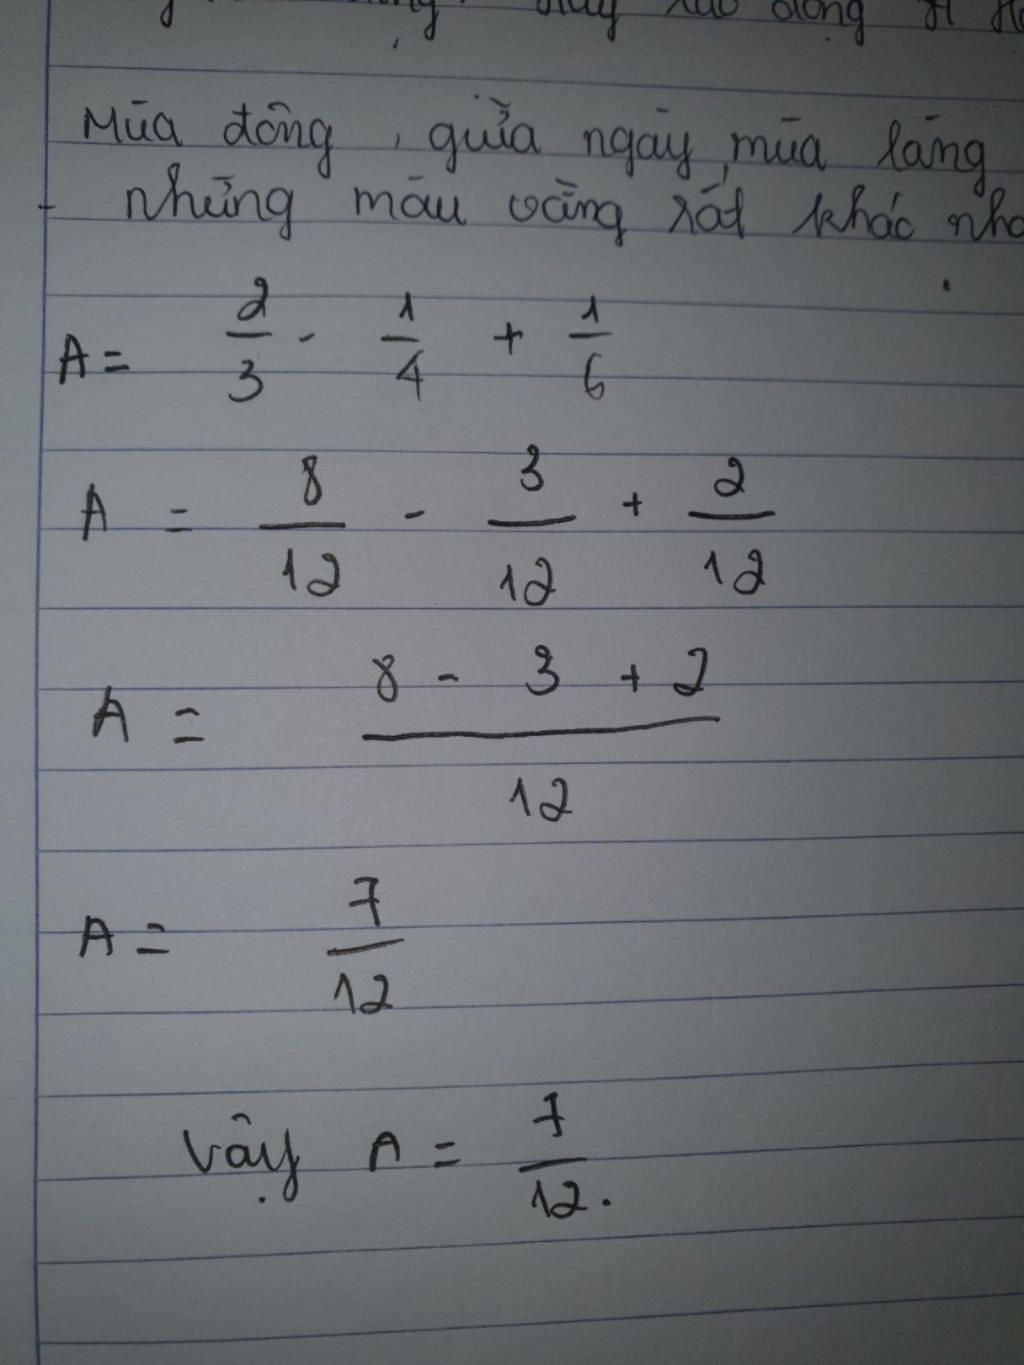 động
Mùa đông, giữa ngày mùa làng
những màu vàng rất khác
A = 2/3 - 1/4 + 1/6
A = 8/12 - 3/12 + 2/12
A = (8 - 3 + 2)/12
A = 7/12
Vậy A = 7/12.